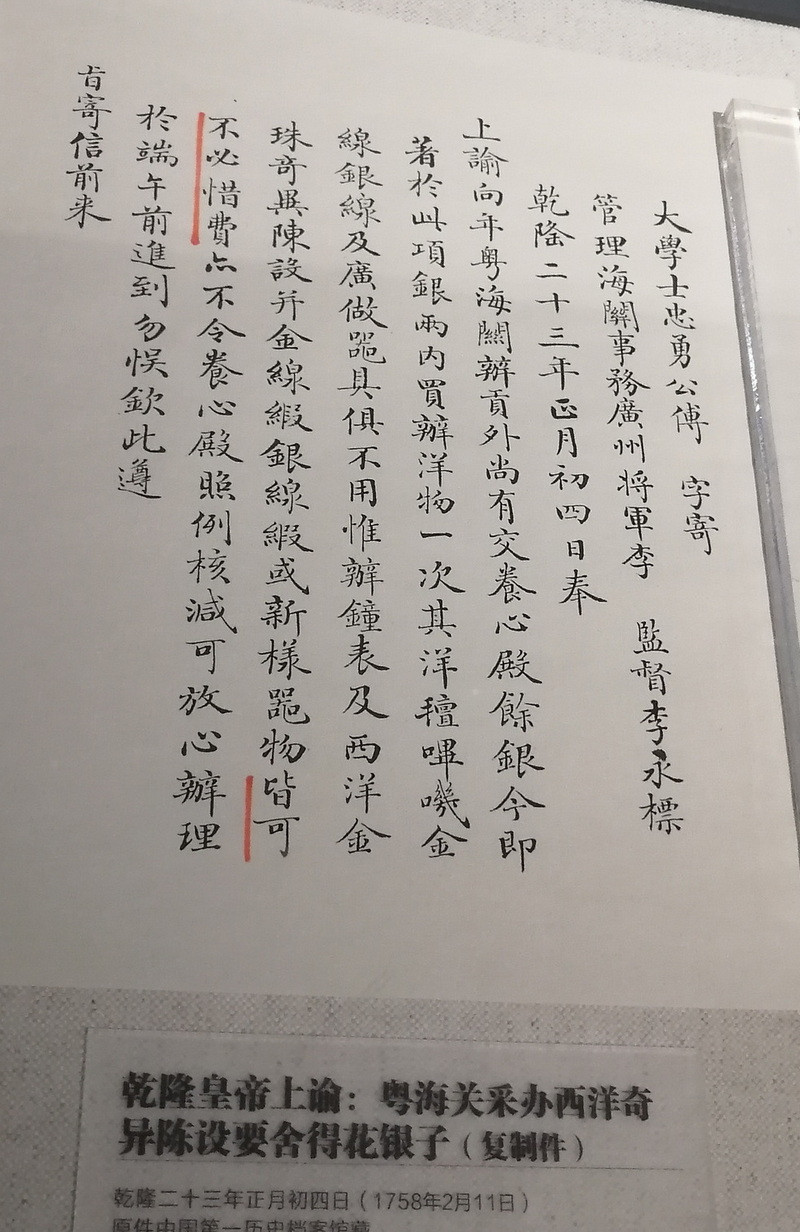 大學士忠勇公傅　字寄
管理海關事務廣州将軍李　監督李永標
乾隆二十三年正月初四日奉
上諭向年粤海關辦貢外尚有交養心殿餘銀今即
著於此項銀兩内買辦洋物一次其洋氊嗶嘰金
線銀線及廣做器具俱不用惟辦鐘表及西洋金
珠奇異陳設并金線緞銀線緞或新樣器物皆可
不必惜費亦不令養心殿照例核減可放心辦理
於端午前進到勿悮欽此遵
旨寄信前来
乾隆皇帝上谕：粤海关采办西洋奇
异陈设要舍得花银子（复制件）
乾隆二十三年正月初四日（1758年2月11日）
原件中国第一历史档案馆藏